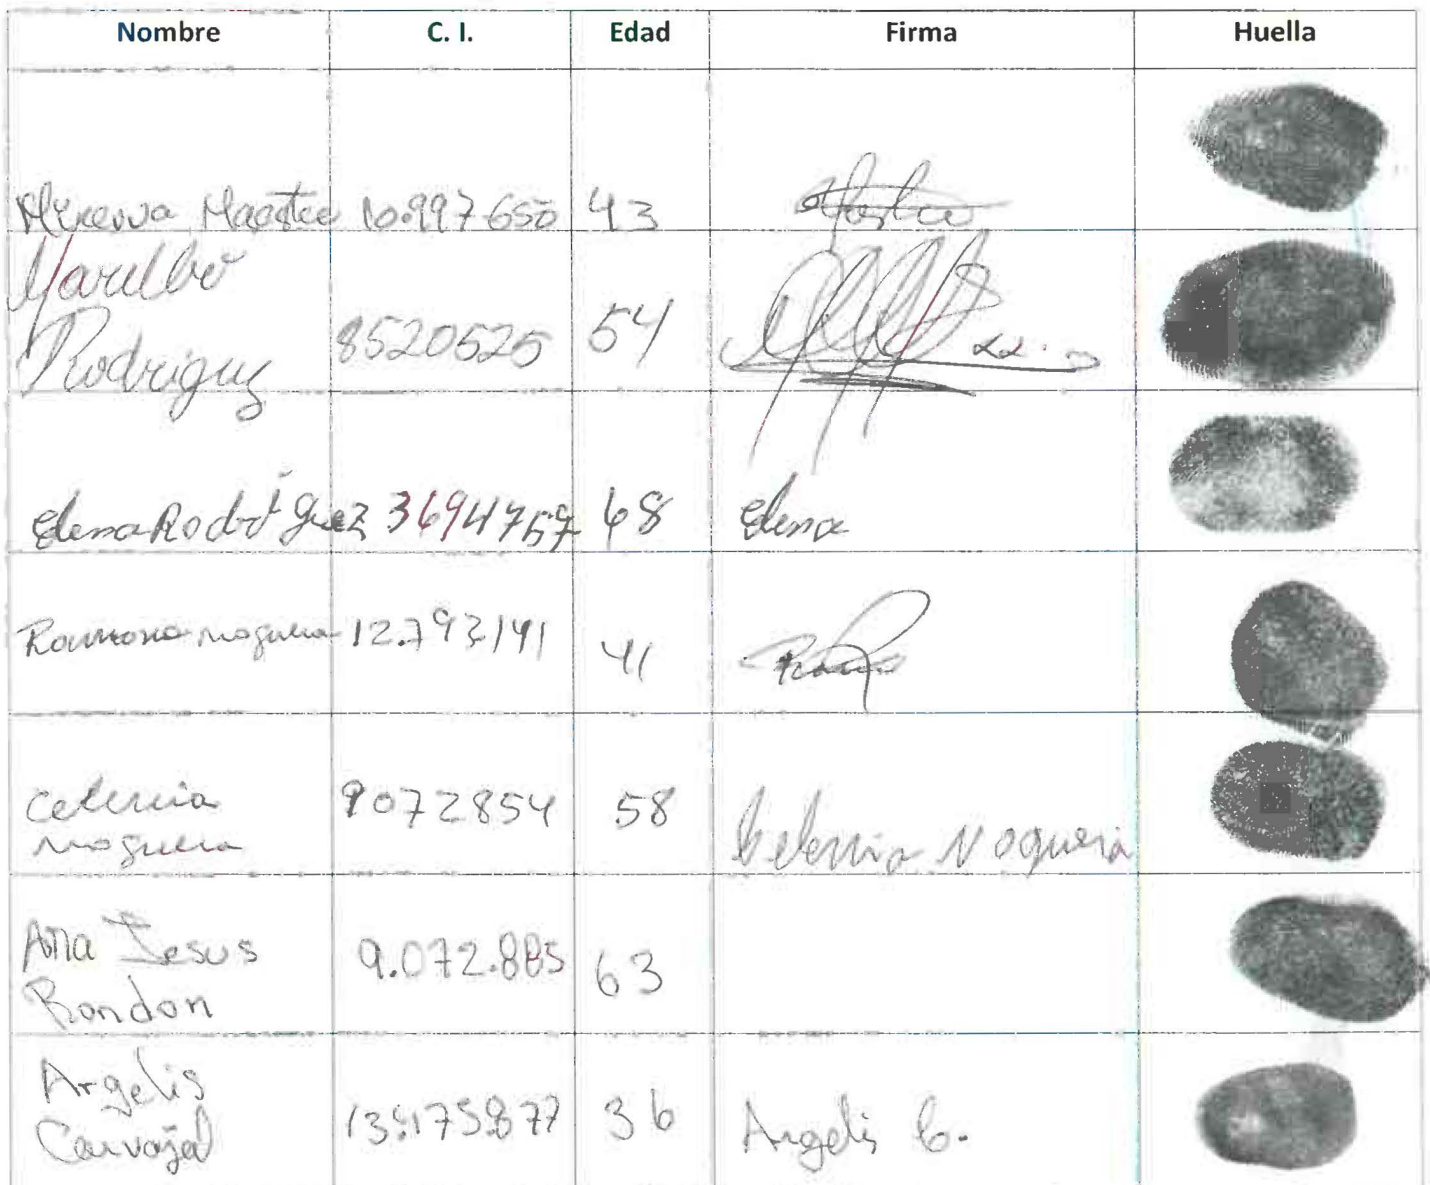 Nombre C. I. Edad Firma Huella
Minerva Maestre 10.997.650 43
Rodriguez 8520525 54
Elena Rodríguez 3694757 68 Elena
Ramona noguera 12.793141 41
Celenia noguera 9072854 58 Celenia Noguera
Ana Jesus Rondon 9.072.885 63
Argelis Carvajal 13.175.877 36 Argelis C.